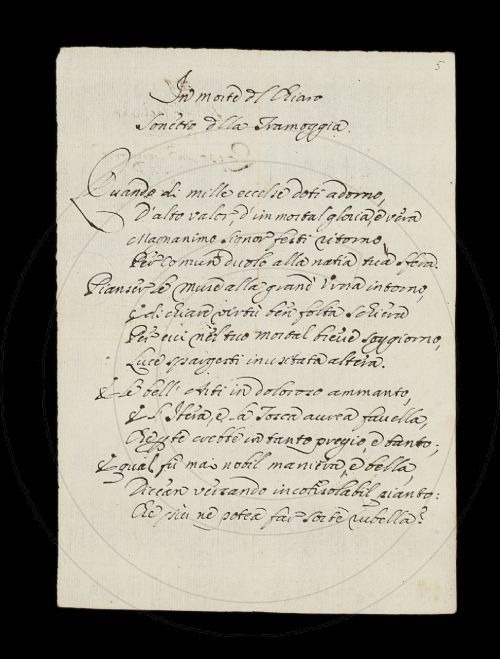 5
In morte del Chiaro
Sonetto della Tramoggia.
Quando di mille eccelse doti adorno,
D'alto valor, d'immortal gloria, e vera
Magnanimo Signor festi ritorno
Per comun duolo alla natia tua sfera.
Pianser le muse alla grand'Urna intorno,
E di chiare virtù ben folta schiera
Per cui nel tuo mortal breve soggiorno,
Luce spargesti inusitata altera.
E le bell'Arti in doloroso ammanto,
E la Tosca aurea favella,
Che per te crebbe in tanto pregio, e tanto;
E qual fu mai nobil maniera, e bella,
Dicean versando inconsolabil pianto:
Che più ne potea far sorte rubella?